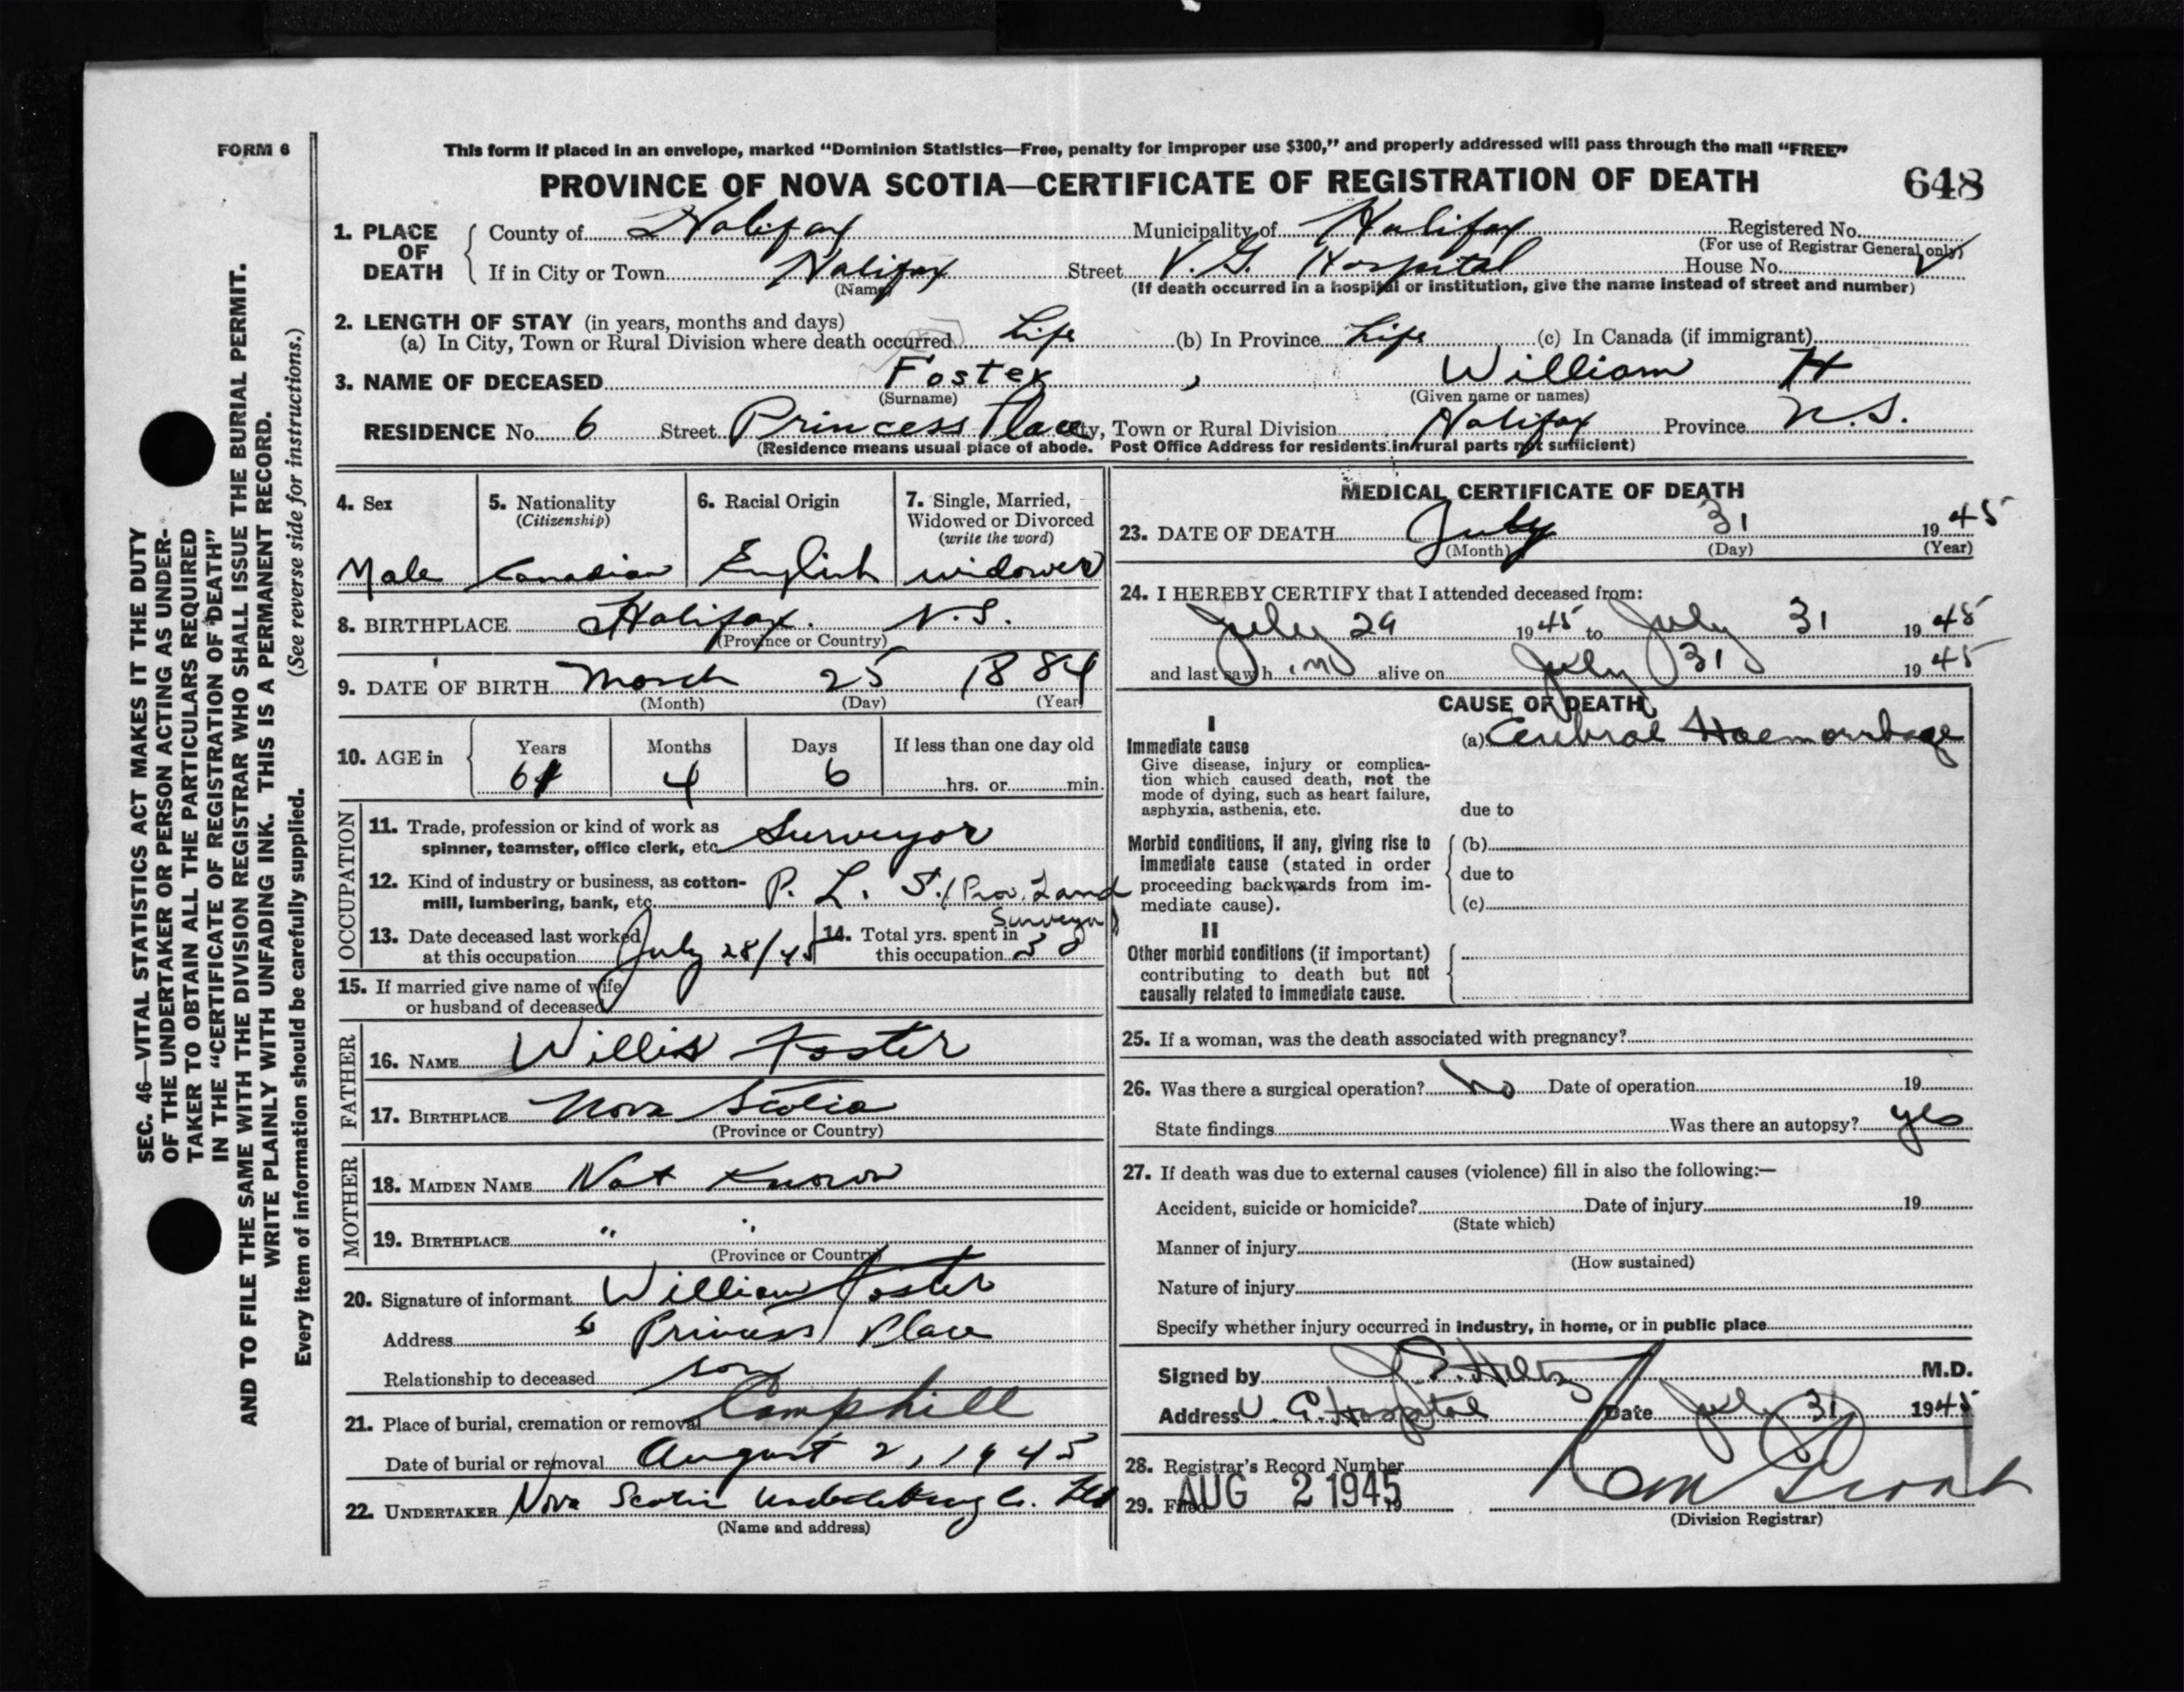 FORM 6
This form if placed in an envelope, marked “Dominion Statistics—Free, penalty for improper use $300,” and properly addressed will pass through the mail “FREE”
PROVINCE OF NOVA SCOTIA—CERTIFICATE OF REGISTRATION OF DEATH 648
1. PLACE OF DEATH County of Halifax Municipality of Halifax Registered No.
(For use of Registrar General only)
If in City or Town Halifax Street V. G. Hospital House No.
(Name) (If death occurred in a hospital or institution, give the name instead of street and number)
2. LENGTH OF STAY (in years, months and days)
(a) In City, Town or Rural Division where death occurred Life (b) In Province Life (c) In Canada (if immigrant)
3. NAME OF DECEASED Foster, William H
(Surname) (Given name or names)
RESIDENCE No. 6 Street Princess Place City, Town or Rural Division Halifax Province N.S.
(Residence means usual place of abode. Post Office Address for residents in rural parts not sufficient)
4. Sex 5. Nationality 6. Racial Origin 7. Single, Married,
(Citizenship) Widowed or Divorced
(write the word)
Male Canadian English widower
8. BIRTHPLACE Halifax. N.S.
(Province or Country)
9. DATE OF BIRTH March 25 1884
(Month) (Day) (Year)
10. AGE in Years Months Days If less than one day old
61 4 6 hrs. or min.
OCCUPATION
11. Trade, profession or kind of work as
spinner, teamster, office clerk, etc. Surveyor
12. Kind of industry or business, as cotton-
mill, lumbering, bank, etc. P. L. S. (Prov. Land
Surveyor)
13. Date deceased last worked 14. Total yrs. spent in
at this occupation July 28/45 this occupation 38
15. If married give name of wife
or husband of deceased
FATHER
16. NAME Willis Foster
17. BIRTHPLACE Nova Scotia
(Province or Country)
MOTHER
18. MAIDEN NAME Not Known
19. BIRTHPLACE " "
(Province or Country)
20. Signature of informant William Foster
Address 6 Princess Place
Relationship to deceased son
21. Place of burial, cremation or removal Camphill
Date of burial or removal August 2, 1945
22. UNDERTAKER Nova Scotia Undertaking Co. Ltd
(Name and address)
MEDICAL CERTIFICATE OF DEATH
23. DATE OF DEATH July 31 1945
(Month) (Day) (Year)
24. I HEREBY CERTIFY that I attended deceased from:
July 29 1945 to July 31 1945
and last saw h im alive on July 31 1945
CAUSE OF DEATH
I
Immediate cause (a) Cerebral Haemorrhage
Give disease, injury or complica-
tion which caused death, not the
mode of dying, such as heart failure,
asphyxia, asthenia, etc. due to
Morbid conditions, if any, giving rise to (b)
immediate cause (stated in order
proceeding backwards from im- due to
mediate cause). (c)
II
Other morbid conditions (if important)
contributing to death but not
causally related to immediate cause.
25. If a woman, was the death associated with pregnancy?
26. Was there a surgical operation? No Date of operation 19
State findings Was there an autopsy? yes
27. If death was due to external causes (violence) fill in also the following:—
Accident, suicide or homicide? Date of injury 19
(State which)
Manner of injury
(How sustained)
Nature of injury
Specify whether injury occurred in industry, in home, or in public place
Signed by Hiltz M.D.
Address V. G. Hospital Date July 31 1945
28. Registrar's Record Number
29. Filed AUG 2 1945 19
(Division Registrar)
SEC. 46—VITAL STATISTICS ACT MAKES IT THE DUTY
OF THE UNDERTAKER OR PERSON ACTING AS UNDER-
TAKER TO OBTAIN ALL THE PARTICULARS REQUIRED
IN THE “CERTIFICATE OF REGISTRATION OF DEATH”
AND TO FILE THE SAME WITH THE DIVISION REGISTRAR WHO SHALL ISSUE THE BURIAL PERMIT.
WRITE PLAINLY WITH UNFADING INK. THIS IS A PERMANENT RECORD.
Every item of information should be carefully supplied. (See reverse side for instructions.)